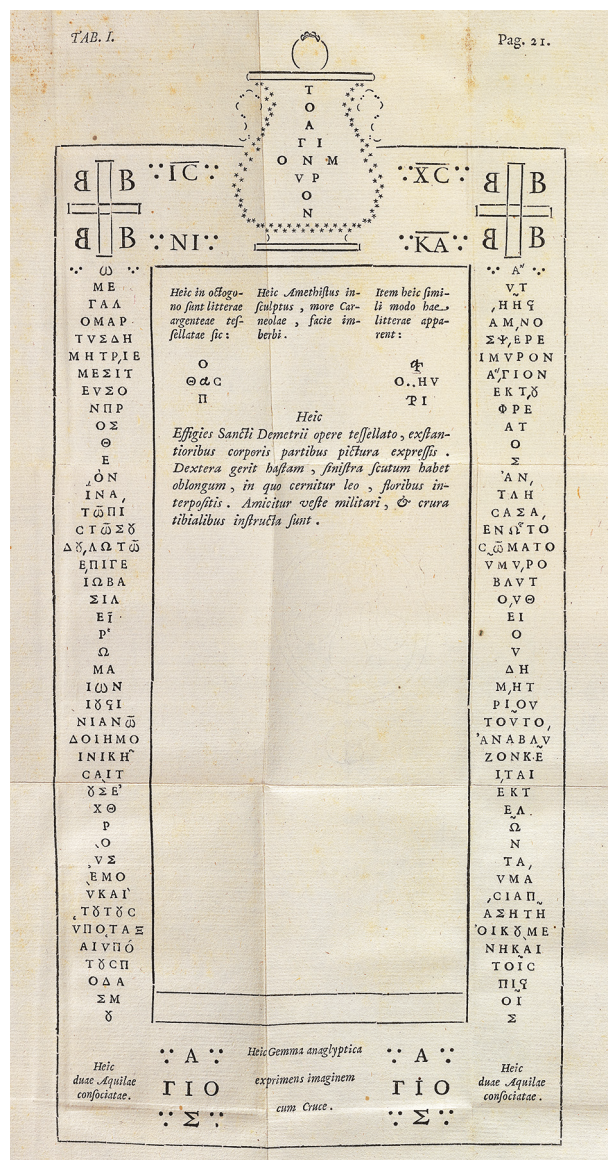 TAB. I.
Pag. 21.
Τ
Ο
Α
Γ Ι
Ο Ν Μ
V Ρ
Ο
Ν
B B
B B
IC
NI
XC
KA
B B
B B
Ѡ
Μ Ε
Γ Α Λ
Ο Μ Α Ρ
Τ V Σ Δ Η
Μ Η Τ Ρ, Ι Ε
Μ Ε Σ Ι Τ
Ε V Σ Ο
Ν Π Ρ
Ο Σ
Θ
Ε
Ο Ν
Ι Ν Α ,
Δ Ȣ, Λ Ω Τ ω̃
Ε, Π Ι Γ Ε
Ι Ω Β Α
Σ Ι Λ
Ω
Μ Α
Ι Ѡ Ν
Δ Ο Ι Η Μ Ο
C A I T
Χ Θ
Ρ
Ο
V Σ
Ε Μ Ο
Τ Ȣ C Π
Ο Δ Α
Σ Μ
Ȣ
Heic in octogo-
no sunt litterae
argenteae tes-
sellatae sic :
Ο
Π
Heic Amethistus in-
sculptus , more Car-
neolae , facie im-
berbi .
Item heic simi-
li modo hae
litterae appa-
rent :
Heic
Effigies Sancti Demetrii opere tessellato , exstan-
tioribus corporis partibus pictura expressis .
Dextera gerit hastam , sinistra scutum habet
oblongum , in quo cernitur leo , floribus in-
terpositis . Amicitur veste militari , & crura
tibialibus instructa sunt .
V Τ
Α Μ, Ν Ο
Σ Ψ, Ε Ρ Ε
Ι Μ V Ρ Ο Ν
Ε Κ Τ, Ȣ
Φ Ρ Ε
Α Τ
Ο
Σ
Ἀ Ν,
Τ Λ Η
C A Σ Α ,
V Μ V, Ρ Ο
Β Λ V Τ
Ο, V Θ
Ε Ι
Ο
V
Δ Η
Μ, Η Τ
Ρ Ι, Ο V
Τ Ο V Τ Ο ,
Ἀ Ν Α Β Λ V
Ι, Τ Α Ι
Ε Κ Τ
Ε Λ
Ω
Ν
Τ Α ,
V Μ Α
Α Σ Η Τ Η
Ο Ι Κ Ȣ Μ Ε
Ν Η Κ Α Ι
Τ Ο Ι͂ C
Ο Ι
Σ
Heic
duae Aquilae
consociatae .
Α
Γ Ι Ο
Σ
Heic Gemma anaglyptica
exprimens imaginem
cum Cruce .
Α
Γ Ι Ο
Σ
Heic
duae Aquilae
consociatae .